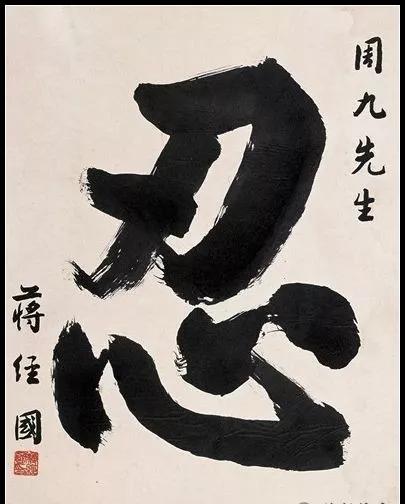 周九先生
忍
蔣経國